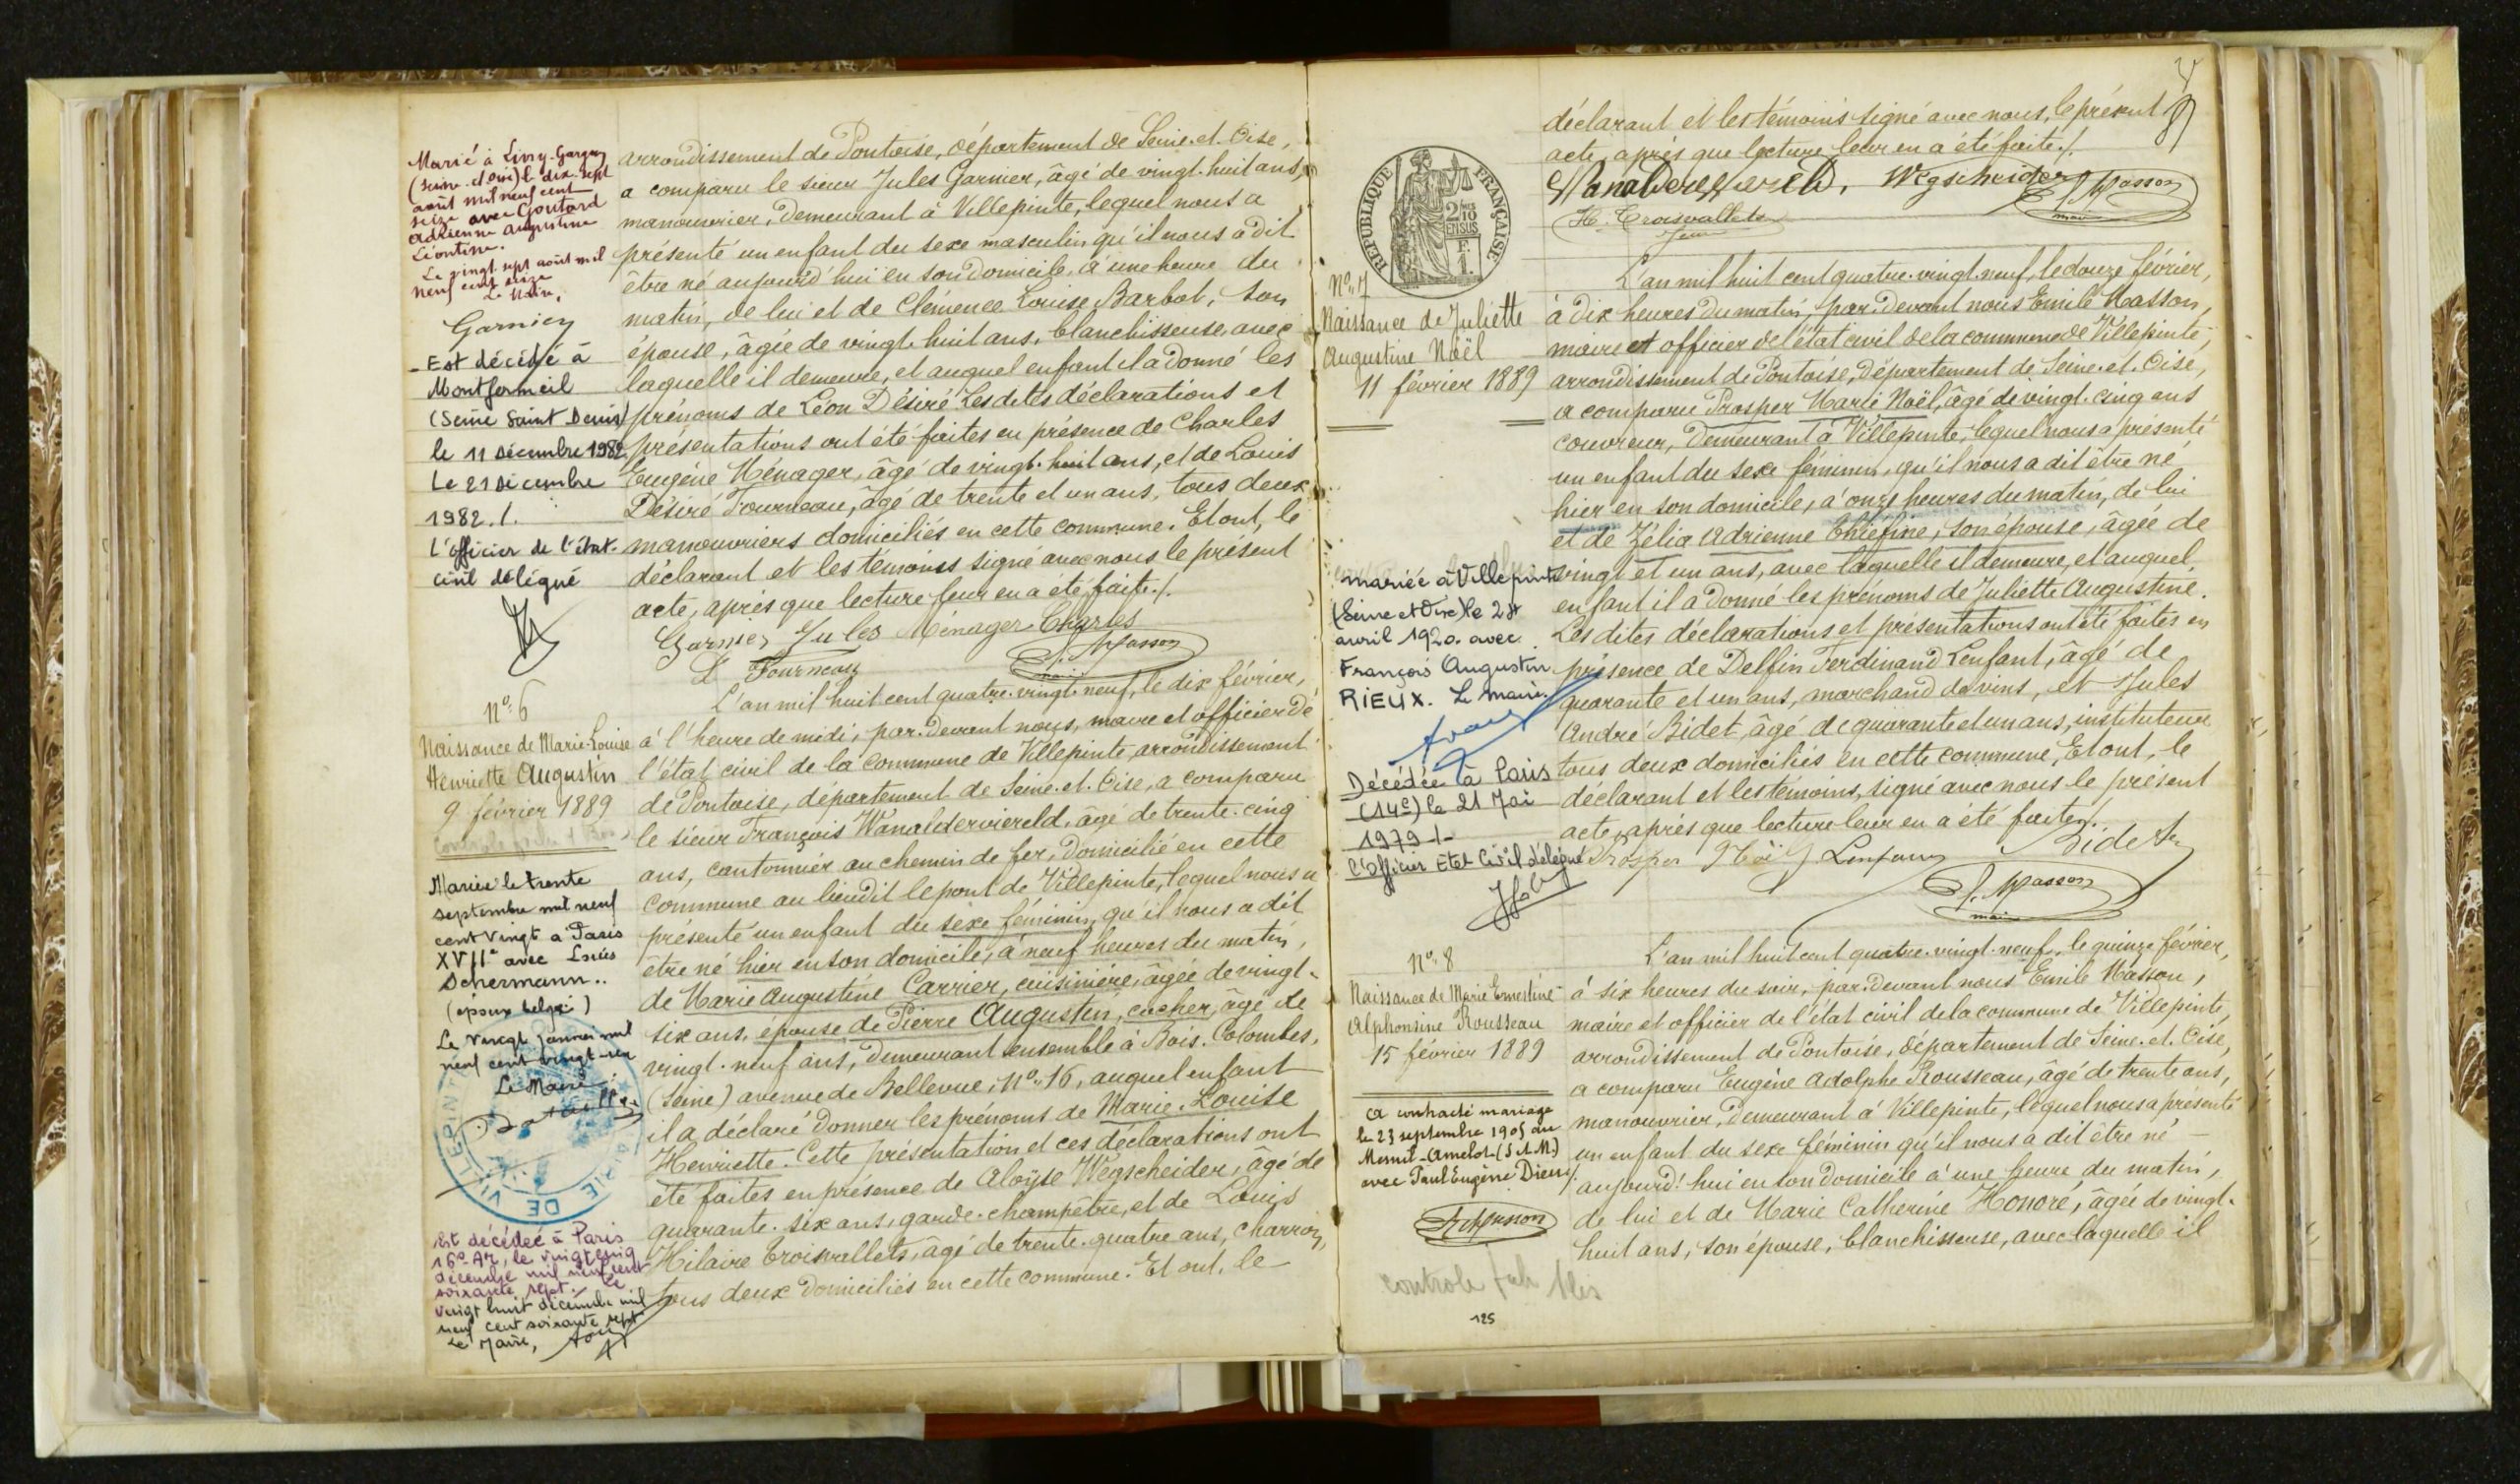 Marié à Livry-Gargan
(Seine-et-Oise) le dix-sept
août mil neuf cent
seize avec Goutard
Adrienne Augustine
Léontine.
Le vingt sept août mil
neuf cent seize
Le Maire,
Garnier
- Est décédé à
Montfermeil
(Seine Saint Denis)
le 11 décembre 1982.
Le 21 décembre
1982./.
L'officier de l'état-
civil délégué
arrondissement de Pontoise, département de Seine-et-Oise,
a comparu le sieur Jules Garnier, âgé de vingt-huit ans,
manouvrier, demeurant à Villepinte, lequel nous a
présenté un enfant du sexe masculin qu'il nous a dit
être né aujourd'hui en son domicile, à une heure du
matin, de lui et de Clémence Louise Barbot, son
épouse, âgée de vingt-huit ans, blanchisseuse, avec
laquelle il demeure, et auquel enfant il a donné les
prénoms de Léon Désiré. Les dites déclarations et
présentations ont été faites en présence de Charles
Eugène Ménager, âgé de vingt-huit ans, et de Louis
Désiré Fourneau, âgé de trente et un ans, tous deux
manouvriers domiciliés en cette commune. Et ont, le
déclarant et les témoins signé avec nous le présent
acte, après que lecture leur en a été faite./.
Garnier Jules Ménager Charles
D Fourneau E. Masson
maire
n° 6
Naissance de Marie-Louise
Henriette Augustin
9 février 1889
Mariée le trente
septembre mil neuf
cent vingt a Paris
XVIIe avec Louis
Schermann..
(époux belge)
Le vingt janvier mil
neuf cent vingt-un
Le Maire
MAIRIE DE VILLEPINTE
Est décédée à Paris
16e Ar, le vingt cinq
décembre mil neuf cent
soixante sept. Le
vingt huit décembre mil
neuf cent soixante sept
Le Maire,
L'an mil huit cent quatre-vingt-neuf, le dix février,
à l'heure de midi, par-devant nous, maire et officier de
l'état civil de la commune de Villepinte, arrondissement
de Pontoise, département de Seine-et-Oise, a comparu
le sieur François Wanalderviereld, âgé de trente-cinq
ans, cantonnier au chemin de fer, domicilié en cette
commune au lieudit le pont de Villepinte, lequel nous a
présenté un enfant du sexe féminin, qu'il nous a dit
être né hier en son domicile, à neuf heures du matin,
de Marie Augustine Carrier, cuisinière, âgée de vingt-
six ans, épouse de Pierre Augustin, cocher, âgé de
vingt-neuf ans, demeurant ensemble à Bois-Colombes,
(Seine) avenue de Bellevue, n° 16, auquel enfant
il a déclaré donner les prénoms de Marie-Louise
Henriette. Cette présentation et ces déclarations ont
été faites en présence de Aloÿse Wegscheider, âgé de
quarante-six ans, garde-champêtre, et de Louis
Hilaire Croisvallets, âgé de trente-quatre ans, charron,
tous deux domiciliés en cette commune. Et ont, le
déclarant et les témoins signé avec nous, le présent
acte, après que lecture leur en a été faite./.
Wegscheider E. Masson
maire
H. Croisvallets
RÉPUBLIQUE FRANÇAISE
2/10 EN SUS
F.
1
N° 7
Naissance de Juliette
Augustine Noël
11 février 1889
mariée à Villepinte
(Seine et Oise) le 24
avril 1920. avec
François Augustin
RIEUX. Le maire.
Décédée à Paris
(14e) le 21 Mai
1979 /-
L'Officier Etat Civil délégué
L'an mil huit cent quatre-vingt-neuf, le douze février,
à dix heures du matin, par-devant nous Emile Masson,
maire et officier de l'état civil de la commune de Villepinte,
arrondissement de Pontoise, département de Seine-et-Oise,
a comparu Prosper Marie Noël, âgé de vingt-cinq ans
couvreur, demeurant à Villepinte, lequel nous a présenté
un enfant du sexe féminin, qu'il nous a dit être né
hier en son domicile, à onze heures du matin, de lui
et de Zélia Adrienne Thiéfine, son épouse, âgée de
vingt et un ans, avec laquelle il demeure, et auquel
enfant il a donné les prénoms de Juliette Augustine.
Les dites déclarations et présentations ont été faites en
présence de Delfin Ferdinand Lenfant, âgé de
quarante et un ans, marchand de vins, et Jules
André Bidet, âgé de quarante et un ans, instituteur
tous deux domiciliés en cette commune, Et ont, le
déclarant et les témoins, signé avec nous le présent
acte, après que lecture leur en a été faite./.
Prosper Noël Lenfant Bidet
E. Masson
maire
N° 8
Naissance de Marie Ernestine
Alphonsine Rousseau
15 février 1889
a contracté mariage
le 23 septembre 1905 au
Mesnil-Amelot (S.et.M.)
avec Paul Eugène
L'an mil huit cent quatre-vingt-neuf, le quinze février,
à six heures du soir, par-devant nous Emile Masson,
maire et officier de l'état civil de la commune de Villepinte,
arrondissement de Pontoise, département de Seine-et-Oise,
a comparu Eugène Adolphe Rousseau, âgé de trente ans,
manouvrier, demeurant à Villepinte, lequel nous a présenté
un enfant du sexe féminin qu'il nous a dit être né
aujourd'hui en son domicile à une heure du matin,
de lui et de Marie Catherine Honoré, âgée de vingt-
huit ans, son épouse, blanchisseuse, avec laquelle il
controle
125